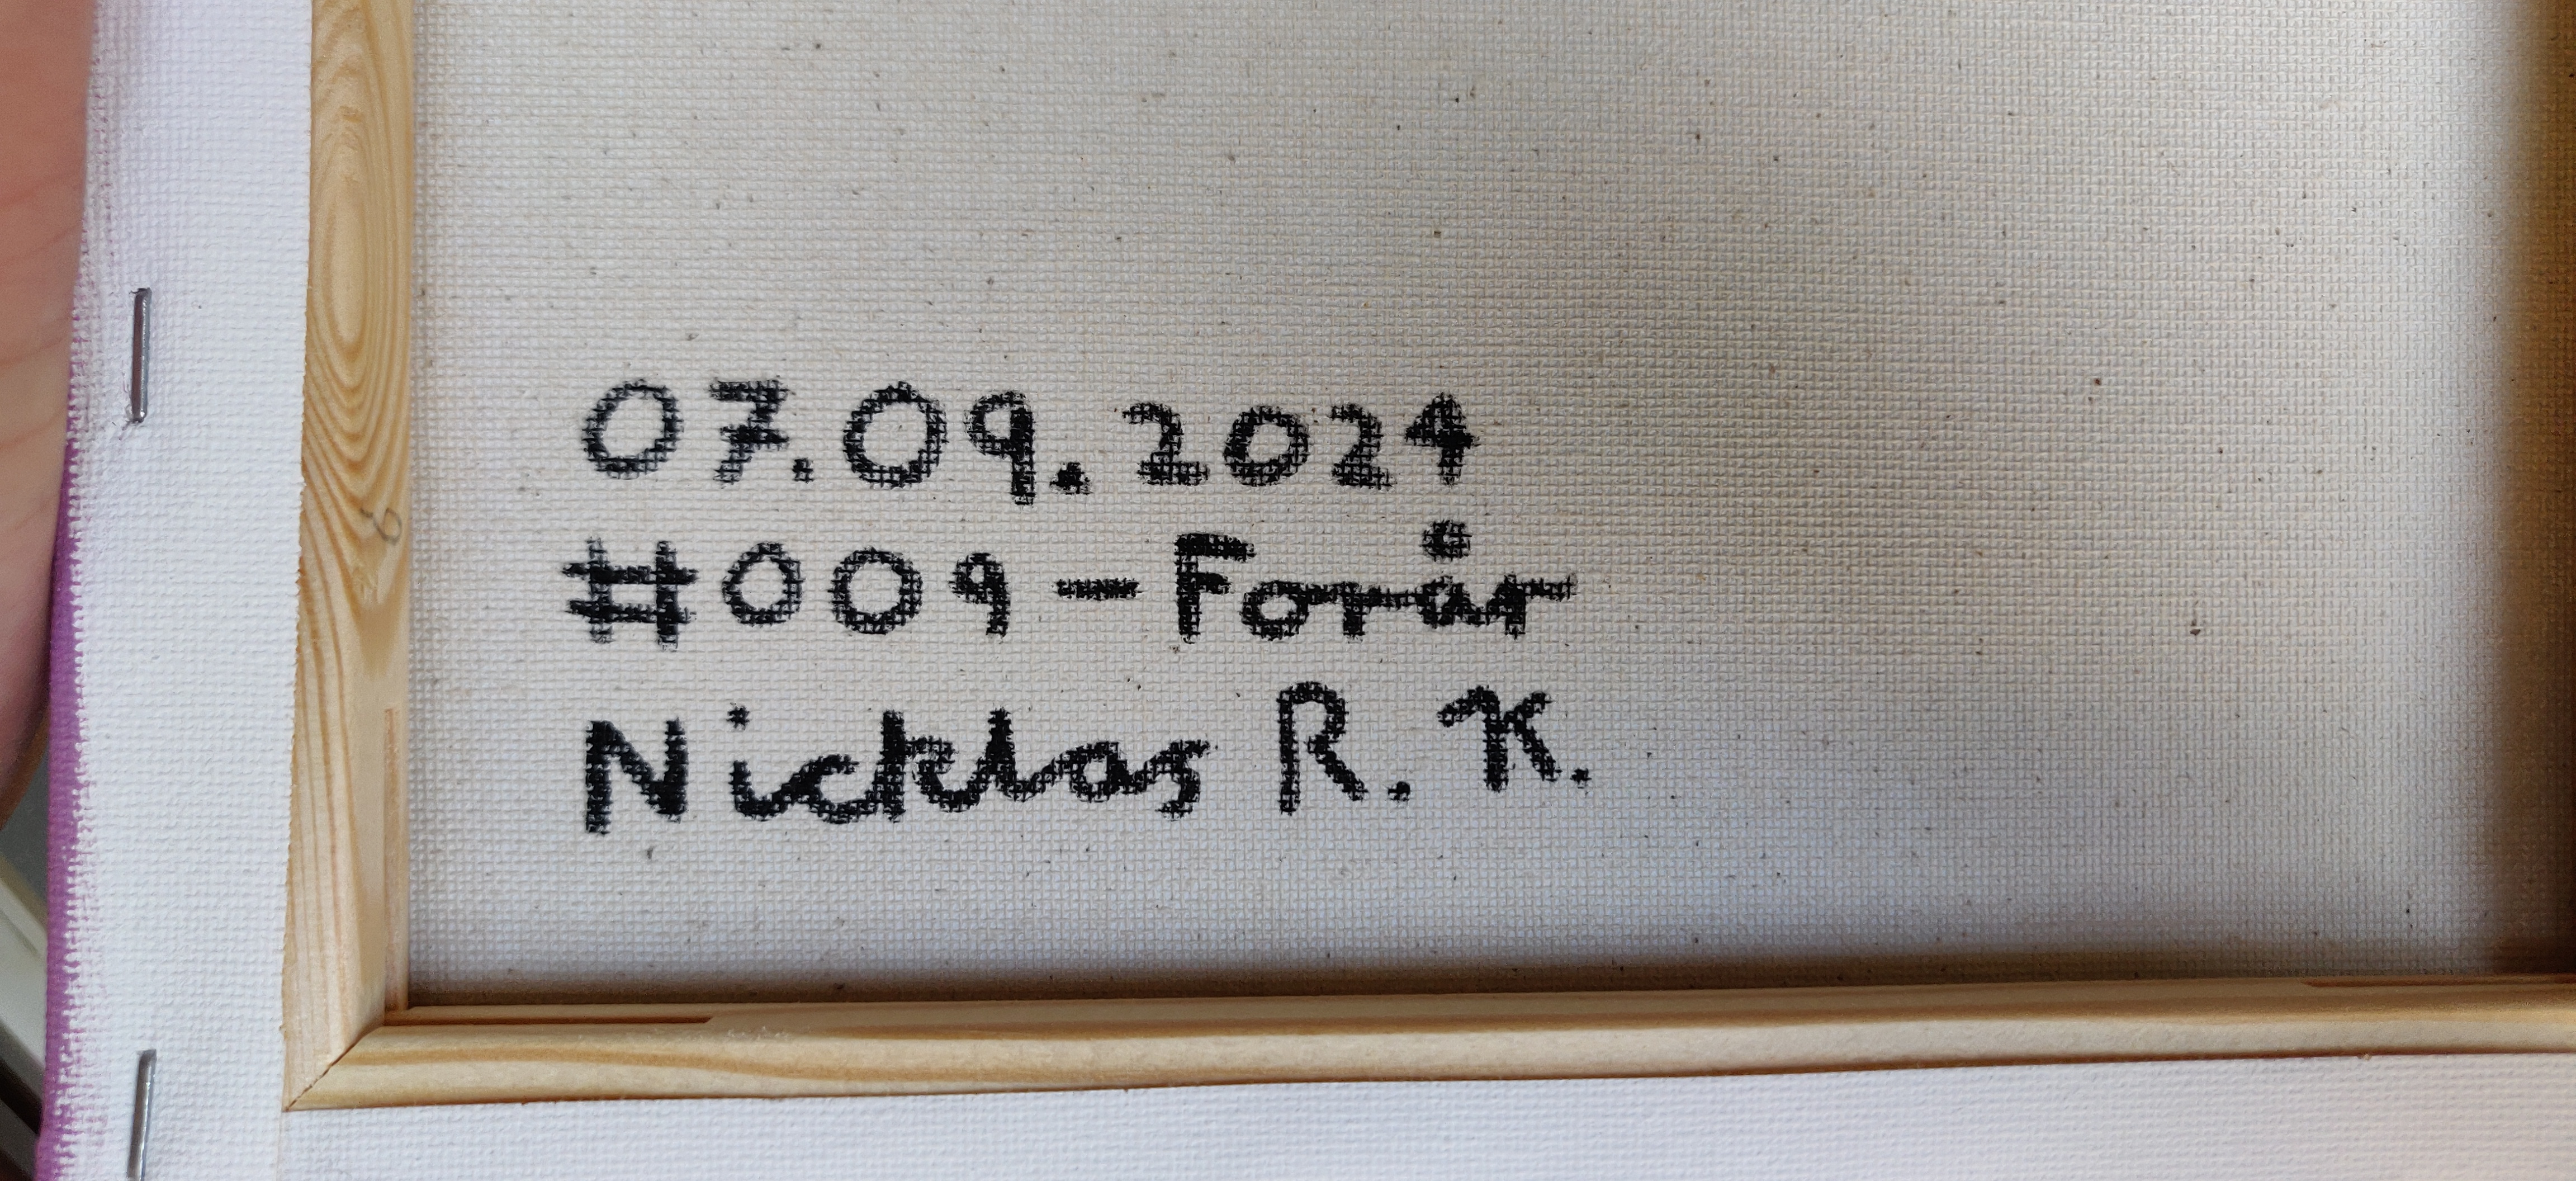 07.09.2024
#009-Forår
Nicklas R. K.